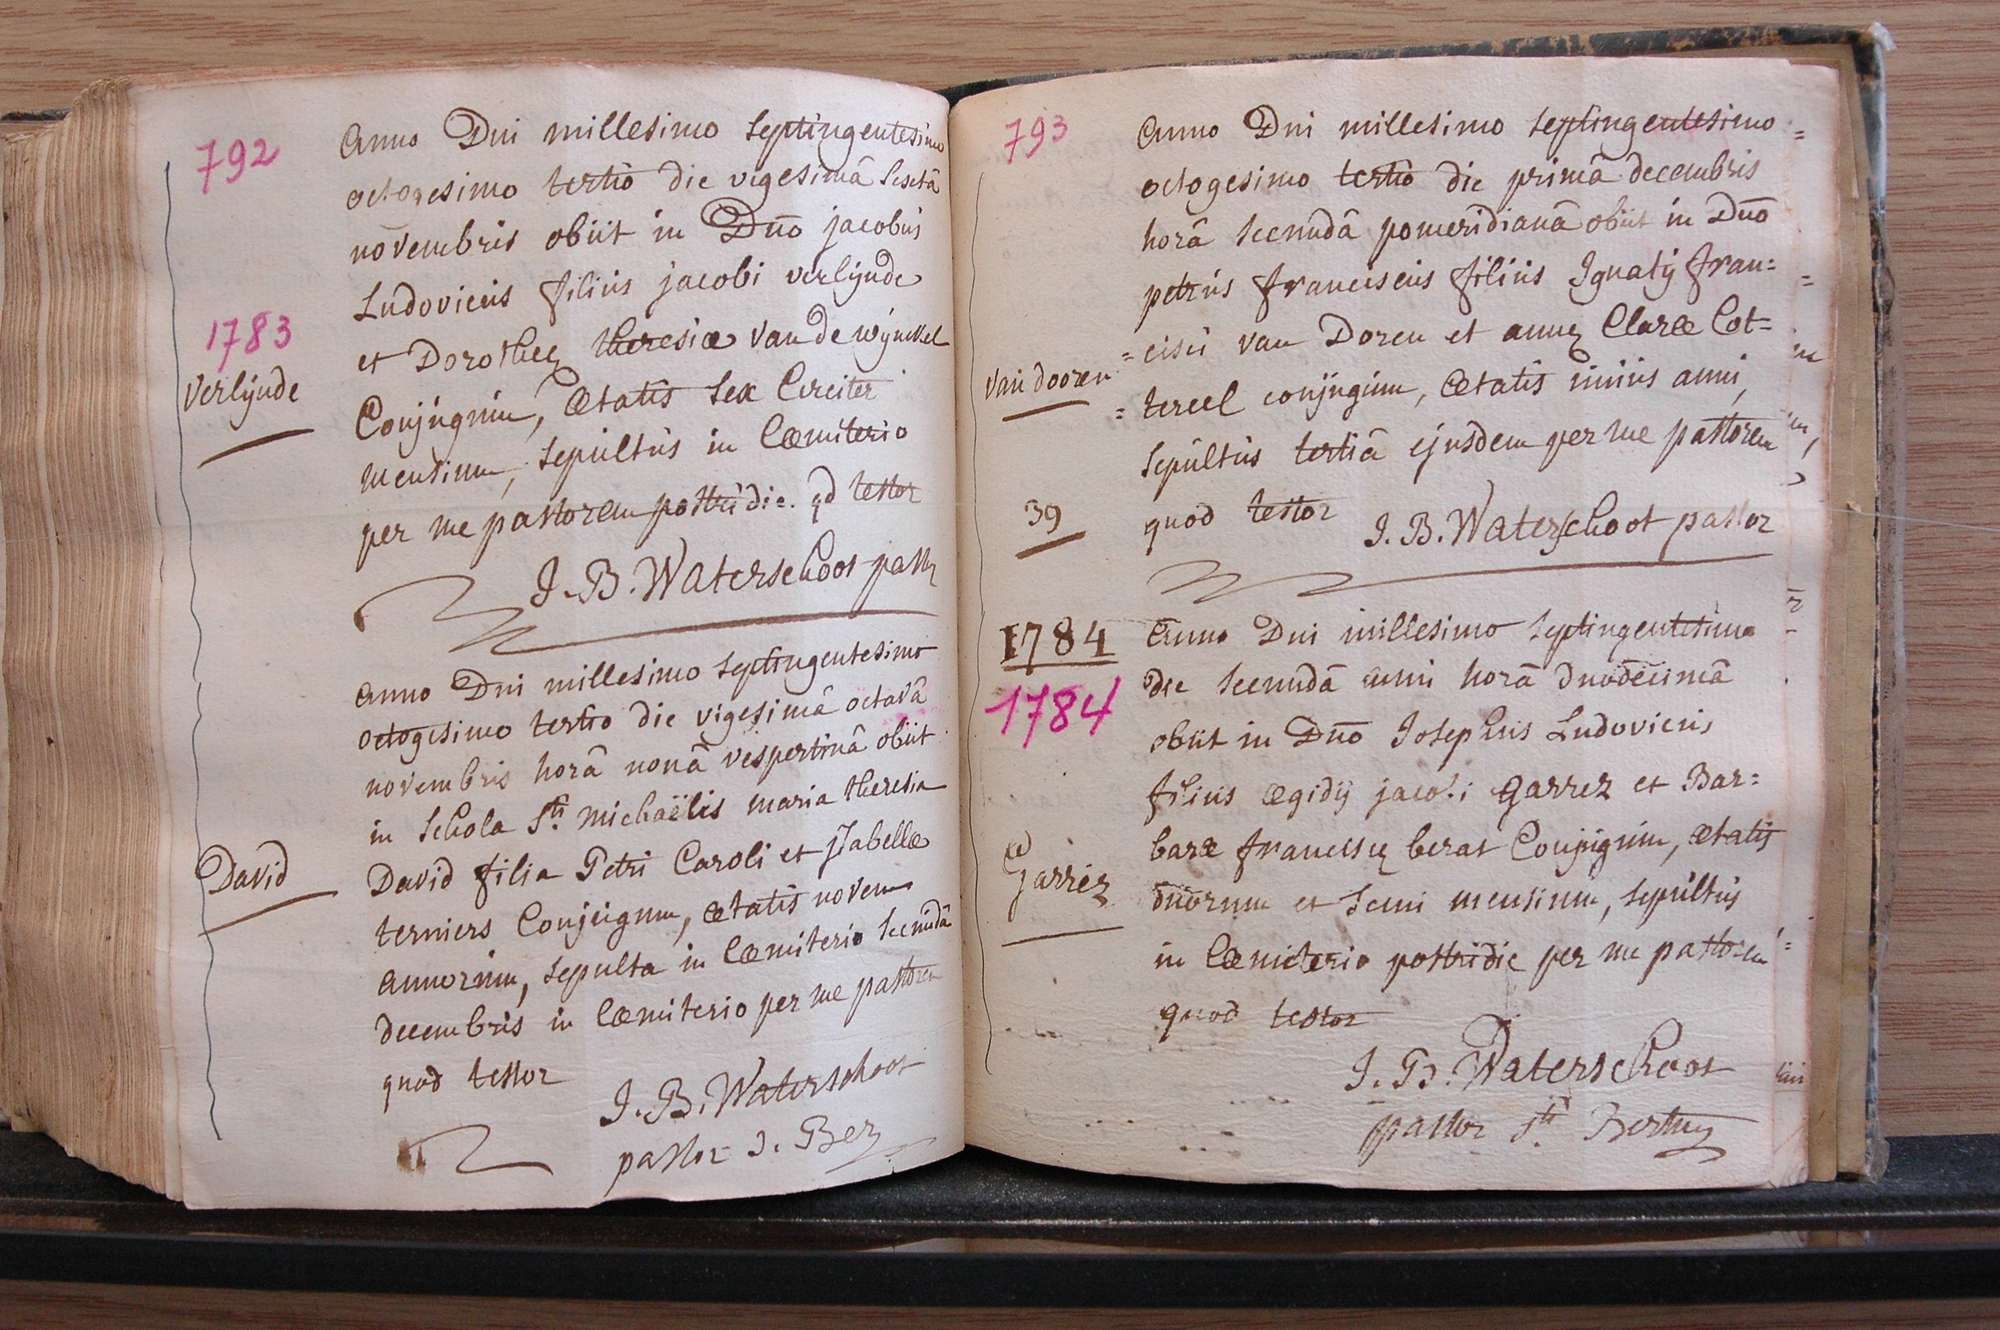 792
1783
Verlijnde
anno Dni millesimo septingentesimo
octogesimo tertio die vigesimâ sextâ
novembris obiit in Dno jacobus
Ludovicus filius jacobi verlijnde
et Dorotheæ theresiæ Van de wijnckel
Conjugum, ætatis sex Circiter
mensium, sepultus in Cœmiterio
per me pastorem postridie. qd testor
J. B. Waterschoot pastr
David
anno Dni millesimo septingentesimo
octogesimo tertio die vigesimâ octavâ
novembris horâ nonâ vespertinâ obiit
in schola Sti michaëlis maria theresia
David filia Petri Caroli et jsabellæ
terniers Conjugum, ætatis novem
annorum, sepulta in Cœmiterio secundâ
decembris in Cœmiterio per me pastorem
quod testor
J. B. Waterschoot
pastor
793
Van dooren
39
anno Dni millesimo septingentesimo
octogesimo tertio die primâ decembris
horâ secundâ pomeridianâ obiit in Dno
petrus franciscus filius Ignatij fran=
=cisci van Doren et annæ Claræ Cot=
=tereel conjugum, ætatis unius anni,
sepultus tertiâ ejusdem per me pastorem
quod testor J. B. Waterschoot pastor
1784
1784
Garrez
anno Dni millesimo septingentesimo
die secundâ anni horâ duodecimâ
obiit in Dno Josephus Ludovicus
filius ægidij jacobi garrez et Bar=
baræ franciscæ berat Conjugum, ætatis
duorum et semi mensium, sepultus
in Cœmiterio postridie per me pastorem
quod testor
J. B. Waterschoot
pastor Sti